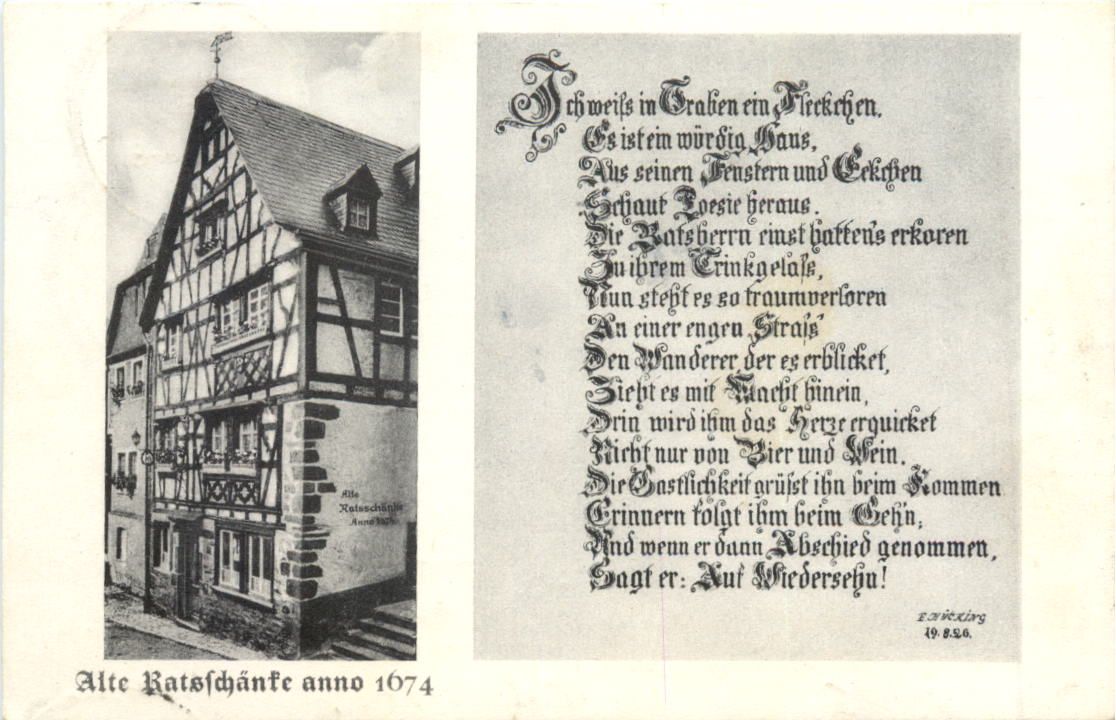 Alte
Ratsschänke
Anno 1674
Alte Ratsschänke anno 1674
Ich weiss in Traben ein Fleckchen,
Es ist ein würdig Haus,
Aus seinen Fenstern und Eckchen
Schaut Poesie heraus.
Die Ratsherrn einst hatten's erkoren
Zu ihrem Trinkgelass,
Nun steht es so traumverloren
An einer engen Strass'
Den Wanderer, der es erblicket,
Zieht es mit Macht hinein,
Drin wird ihm das Herze erquicket
Nicht nur von Bier und Wein.
Die Gastlichkeit grüsst ihn beim Kommen
Erinnern folgt ihm beim Geh'n;
Und wenn er dann Abschied genommen,
Sagt er: Auf Wiedersehn!
19.8.26.